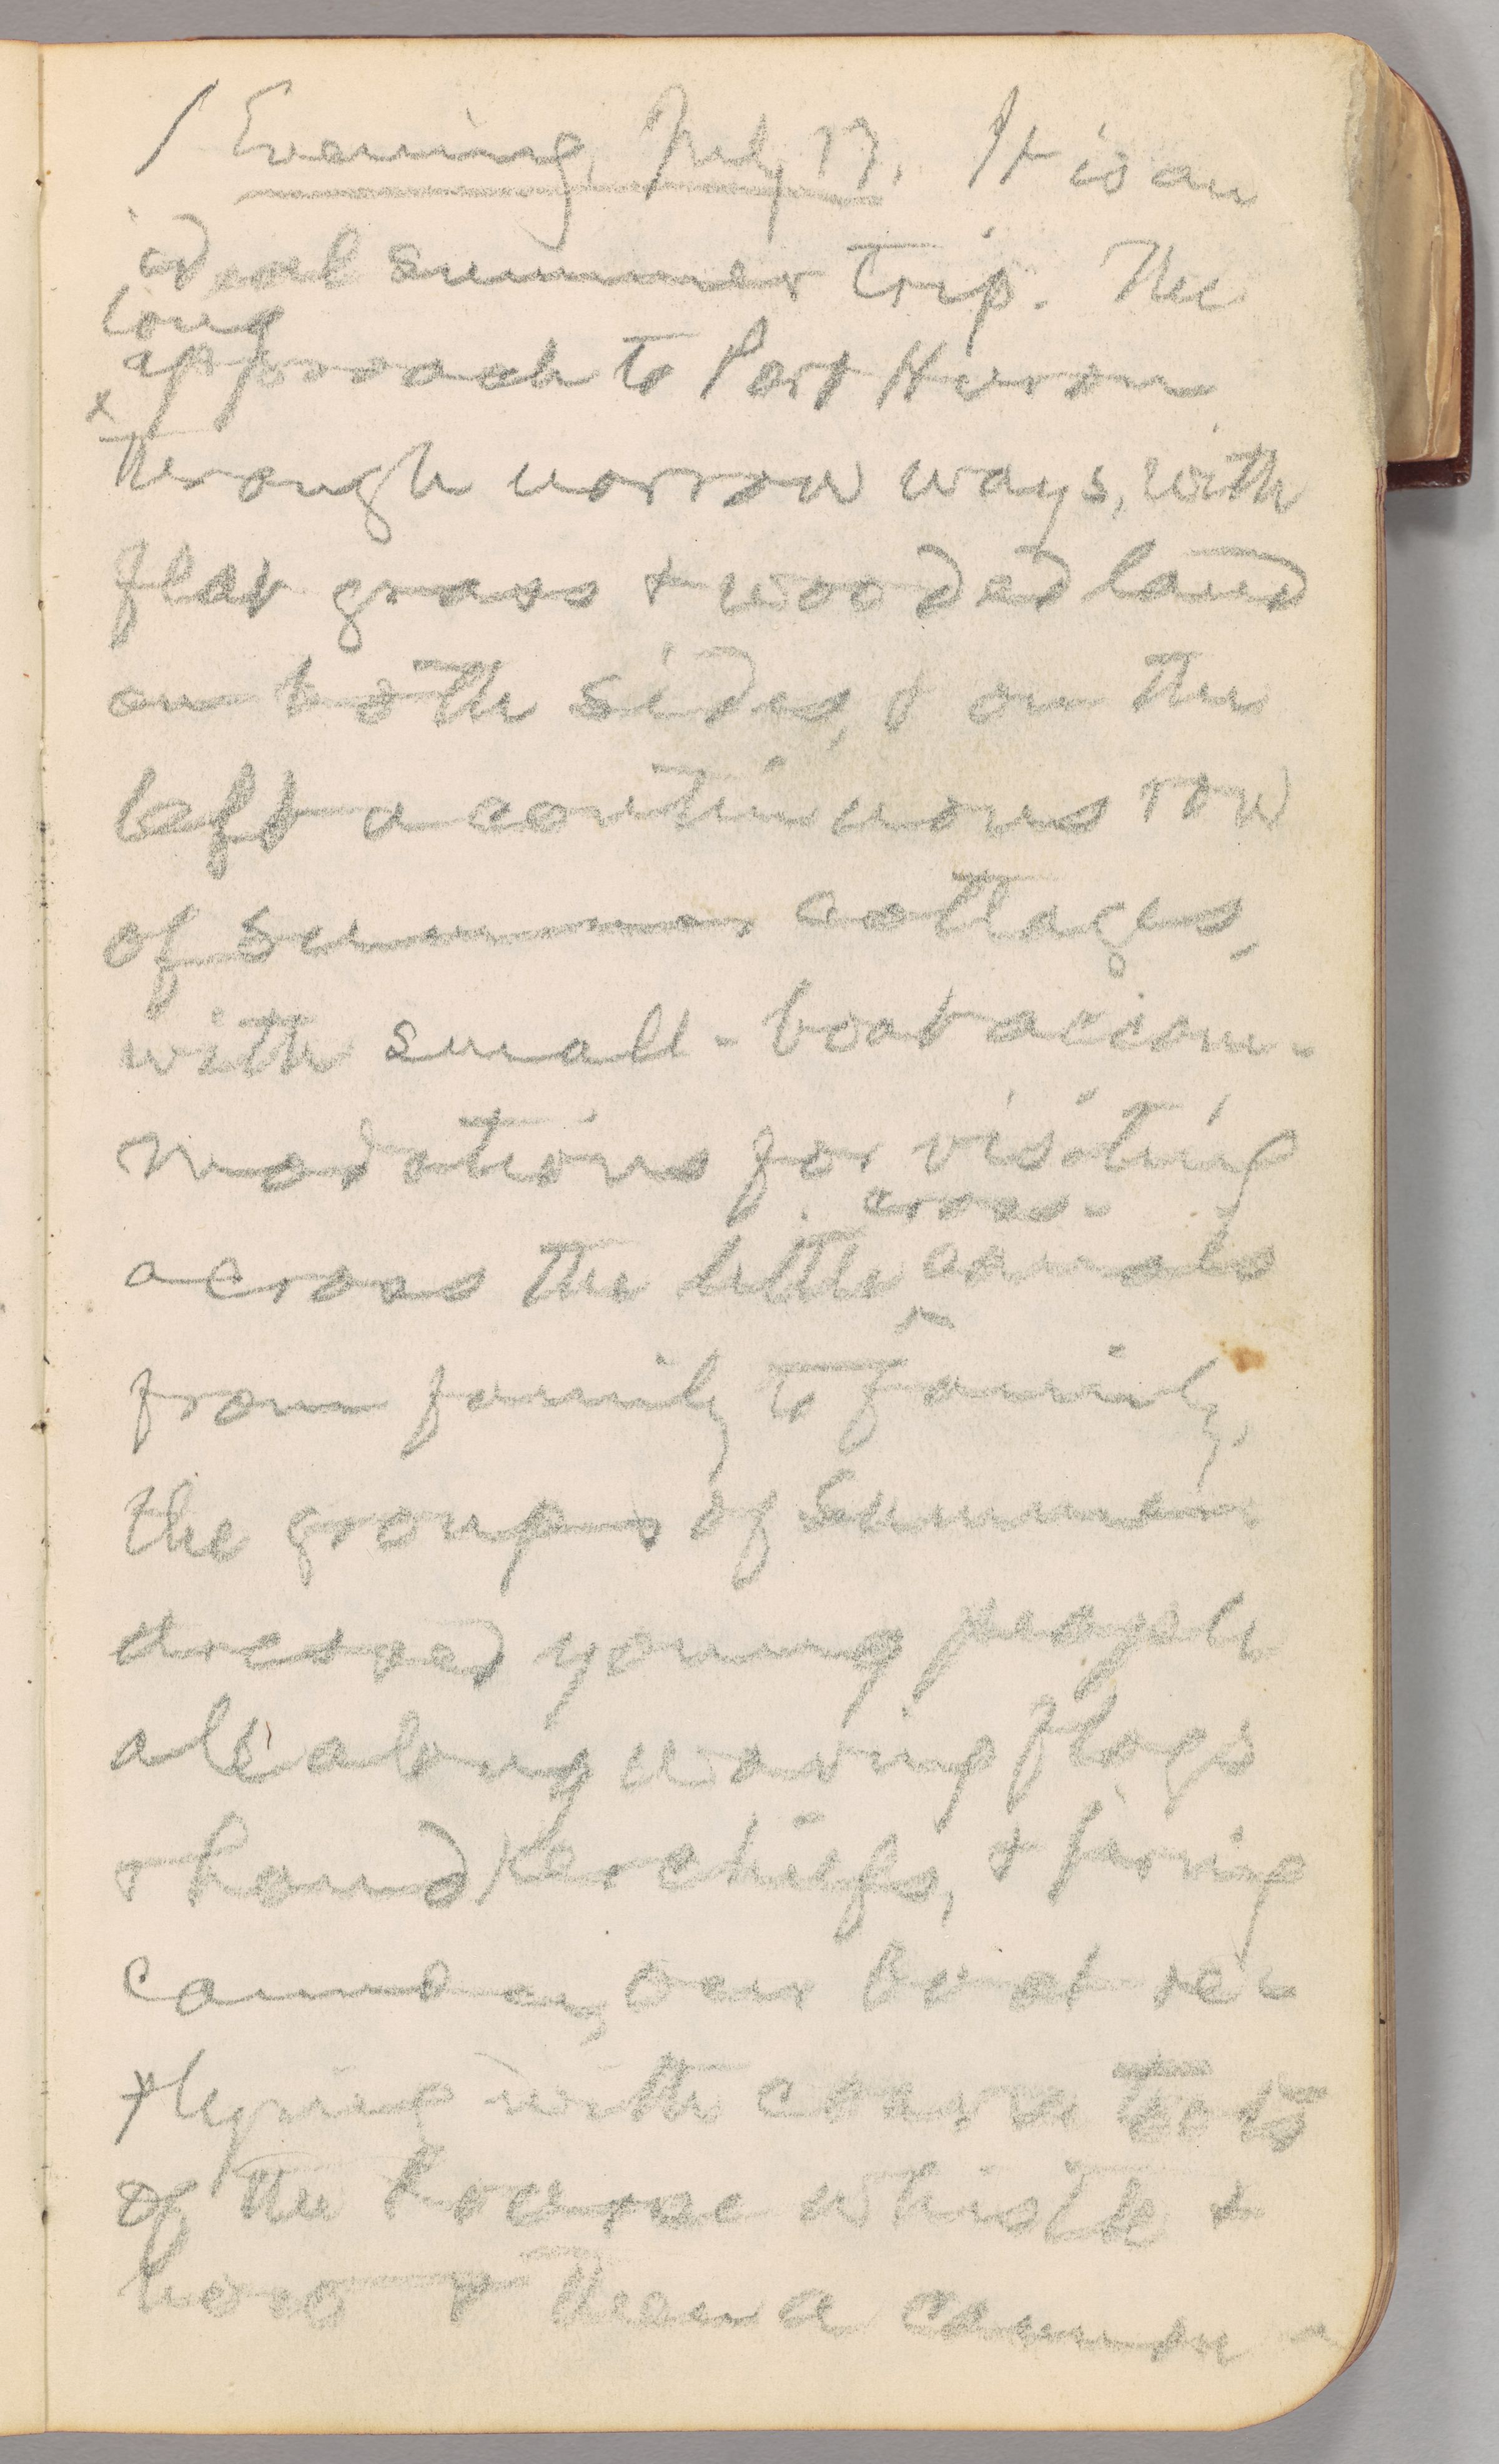 / Evening, July 17. It is an
ideal summer trip. The
long
approach to Port Huron
x
through narrow ways, with
flat grass & wooded land
on both sides, & on the
left a continuous row
of summer cottages,
with small-boat accom-
modations for visiting
cross-
across the little canals
^
from family to family,
the groups of summer
dressed young people
all along waving flags
& handkerchiefs, & firing
cannon, our boat re-
plying with coarse toots
of the hoarse whistle &
here & there a cannon